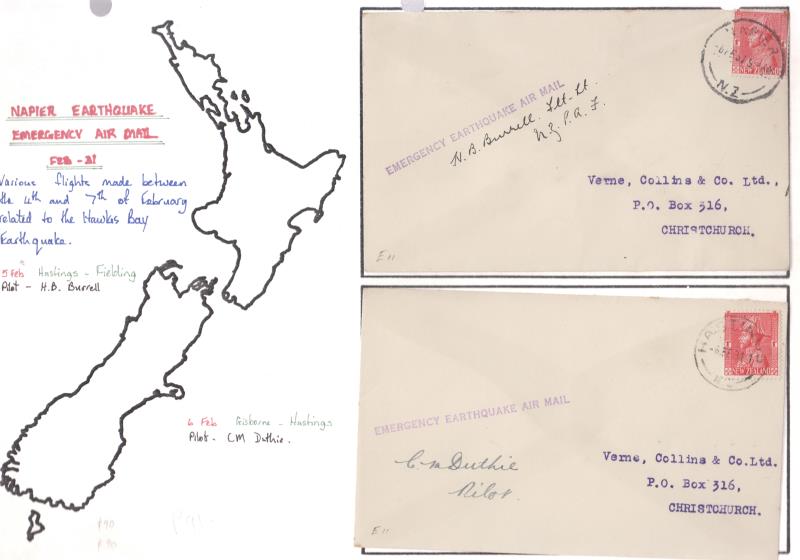 NAPIER EARTHQUAKE
EMERGENCY AIR MAIL
FEB - 31
Various flights made between
the 4th and 7th of February
related to the Hawkes Bay
Earthquake.
5 Feb Hastings - Fielding
Pilot - H.B. Burrell
6 Feb Gisborne - Hastings
Pilot - CM Duthie.
EMERGENCY EARTHQUAKE AIR MAIL
H. B. Burrell. Flt. Lt.
N.Z.P.A.F.
NAPIER
N.Z.
Verne, Collins & Co. Ltd.,
P.O. Box 316,
CHRISTCHURCH.
E11
HASTINGS
NEW ZEALAND
EMERGENCY EARTHQUAKE AIR MAIL
C. M Duthie
Pilot.
Verne, Collins & Co.Ltd.
P.O. Box 316,
CHRISTCHURCH.
E11